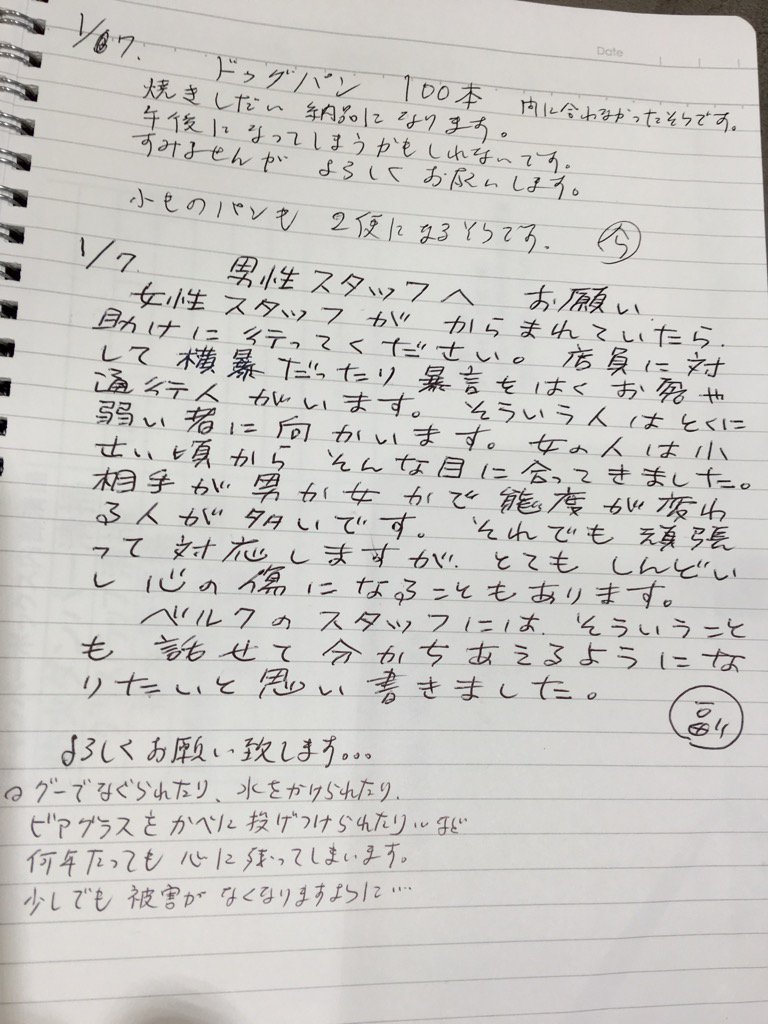 Date
1/7.
ドッグパン 100本 間に合わなかったそうです。
焼きしだい 納品になります。
午後になってしまうかもしれないです。
すみませんが よろしくお願いします。
小ものパンも 2便になるそうです.
1/7. 男性スタッフへ お願い.
女性スタッフが からまれていたら.
助けに行ってください。 店員に対
して横暴だったり暴言をはくお客や
通行人がいます。 そういう人はとくに
弱い者に向かいます。女の人は小
さい頃から そんな目に合ってきました。
相手が男か女かで態度が変わ
る人が多いです。 それでも頑張
って対応しますが. とてもしんどい
し心の傷になることもあります。
ベルクのスタッフには. そういうこと
も 話せて分かちあえるようにな
りたいと思い書きました。
副
よろしくお願い致します...
グーでなぐられたり、水をかけられたり.
ビアグラスをかべに投げつけられたり...など
何年たっても心に残ってしまいます。
少しでも被害がなくなりますように…